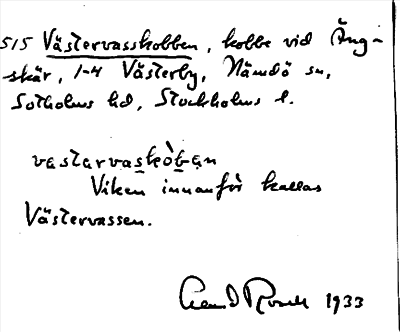 515 Västervasskobben, kobbe vid Äng-
skär, 1-4 Västerby, Nämdö sn,
Sotholms hd, Stockholms l.
västərvaskòb·ən
Viken innanför kallas
Västervassen.
1933